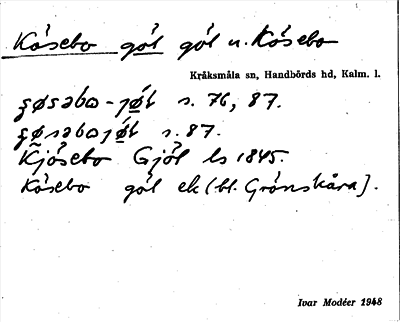 Kösebo göl göl n. Kösebo
Kråksmåla sn, Handbörds hd, Kalm. l.
s. 76, 87.
s. 87.
Kjösebo Gjöl ls 1845.
Kösebo göl ek (bl. Grönskåra).
Ivar Modéer 1948